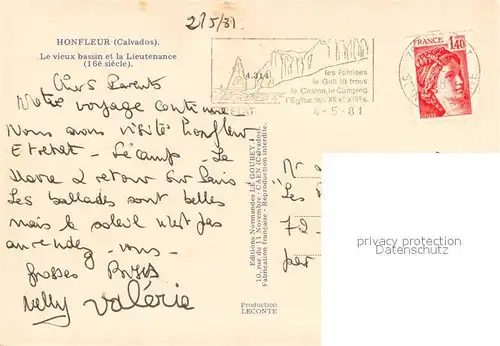 215/81
HONFLEUR (Calvados).
Le vieux bassin et la Lieutenance
(16e siècle).
4.314
les Falaises
le Golf 18 trous
le Casino, le Camping
l'Eglise des XIe et XIIe s.
4-5-81
FRANCE
1,40
Chers Parents
Notre voyage continue
Nous avons visité Honfleur
Etretat - Fécamp - Le
Havre & retour sur Paris
Les ballades sont belles
mais le soleil n'est pas
au rendez - vous -
Grosses Bises
Nelly Valérie
Editions Normandes LE GOUBEY
10, rue du 11 Novembre - CAEN (Calvados).
Fabrication française - Reproduction interdite.
Production
LECONTE
Mr
Les
72 -
par
privacy protection
Datenschutz